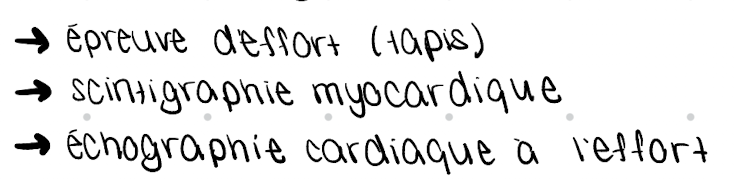 → épreuve d'effort (tapis)
→ scintigraphie myocardique
→ échographie cardiaque à l'effort